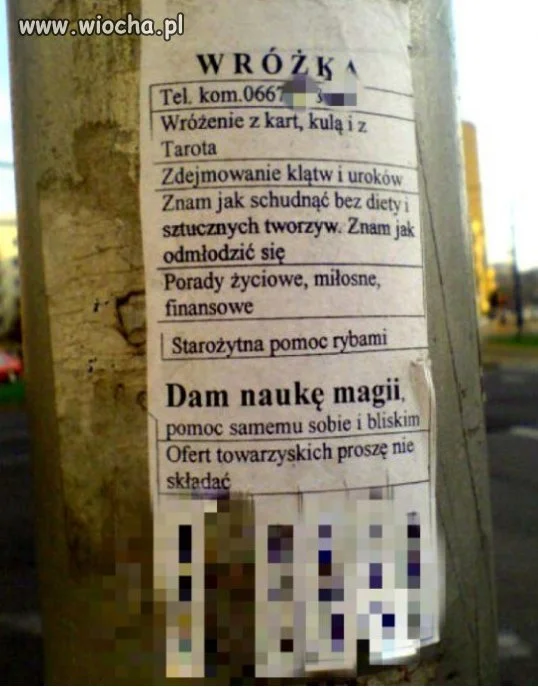 www.wiocha.pl
WRÓŻKA
Tel. kom.0667
Wróżenie z kart, kulą i z
Tarota
Zdejmowanie klątw i uroków
Znam jak schudnąć bez diety i
sztucznych tworzyw. Znam jak
odmłodzić się
Porady życiowe, miłosne,
finansowe
Starożytna pomoc rybami
Dam naukę magii,
pomoc samemu sobie i bliskim
Ofert towarzyskich proszę nie
składać